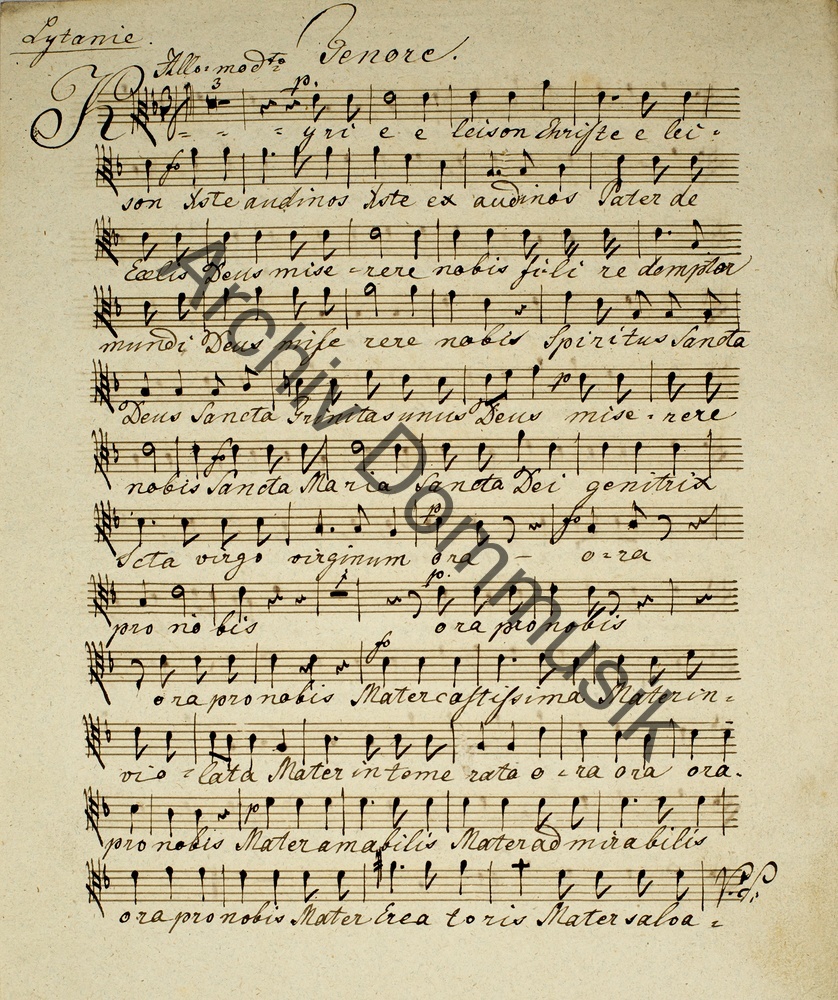 Lytanie. Tenore.
Allo: modto
3 p.
K - - - yri e e leison Christe e lei -
fo
son Xste audinos Xste ex audinos Pater de
Coelis Deus mise - rere nobis fili redemptor
mundi Deus mise rere nobis Spiritus Sancta
p
Deus Sancta Trinitas unus Deus mise - rere
fo
nobis Sancta Maria Sancta Dei genitrix
p fo
Scta virgo virginum ora - o-ra
1 p.
pro no bis ora pro nobis
fo
ora pro nobis Mater castissima Mater in -
vio - lata Mater in teme rata o - ra ora ora.
p
pro nobis Mater amabilis Mater ad mirabilis
ora pro nobis Mater Crea toris Mater salva -
Archiv Dommusik